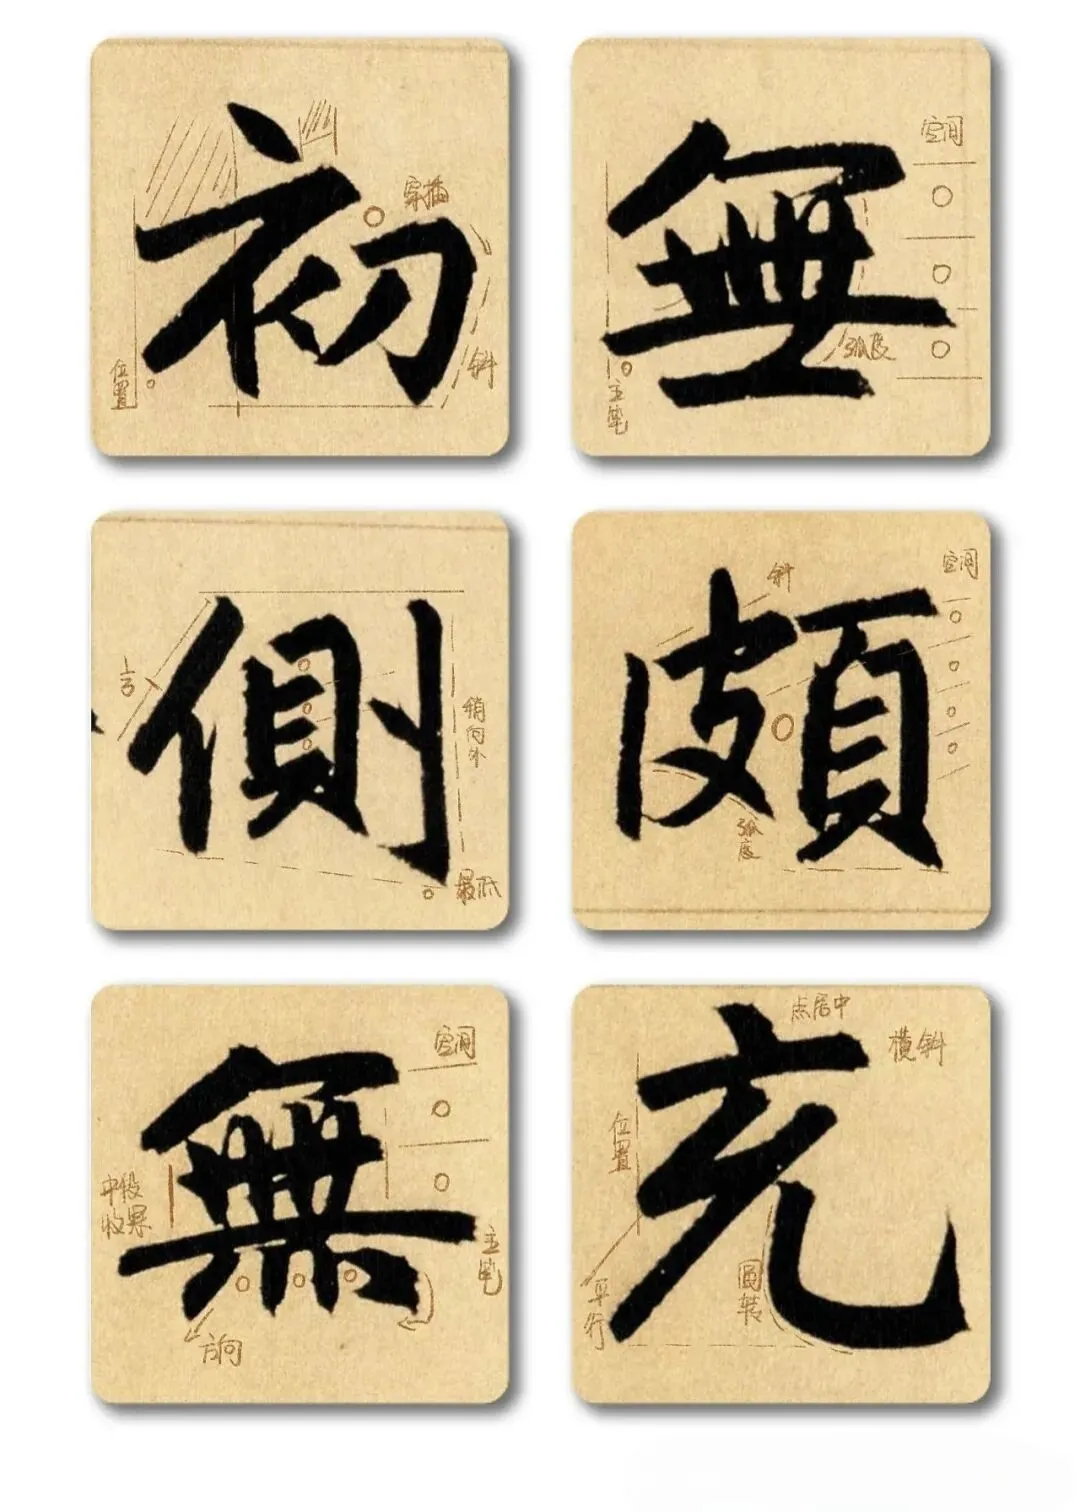 初
穿插
位置
斜
無
空间
弧度
主笔
側
1/3
稍向外
最低
頗
斜
空间
弧度
無
空间
中段
收紧
主笔
方向
充
点居中
横斜
位置
平行
圆转